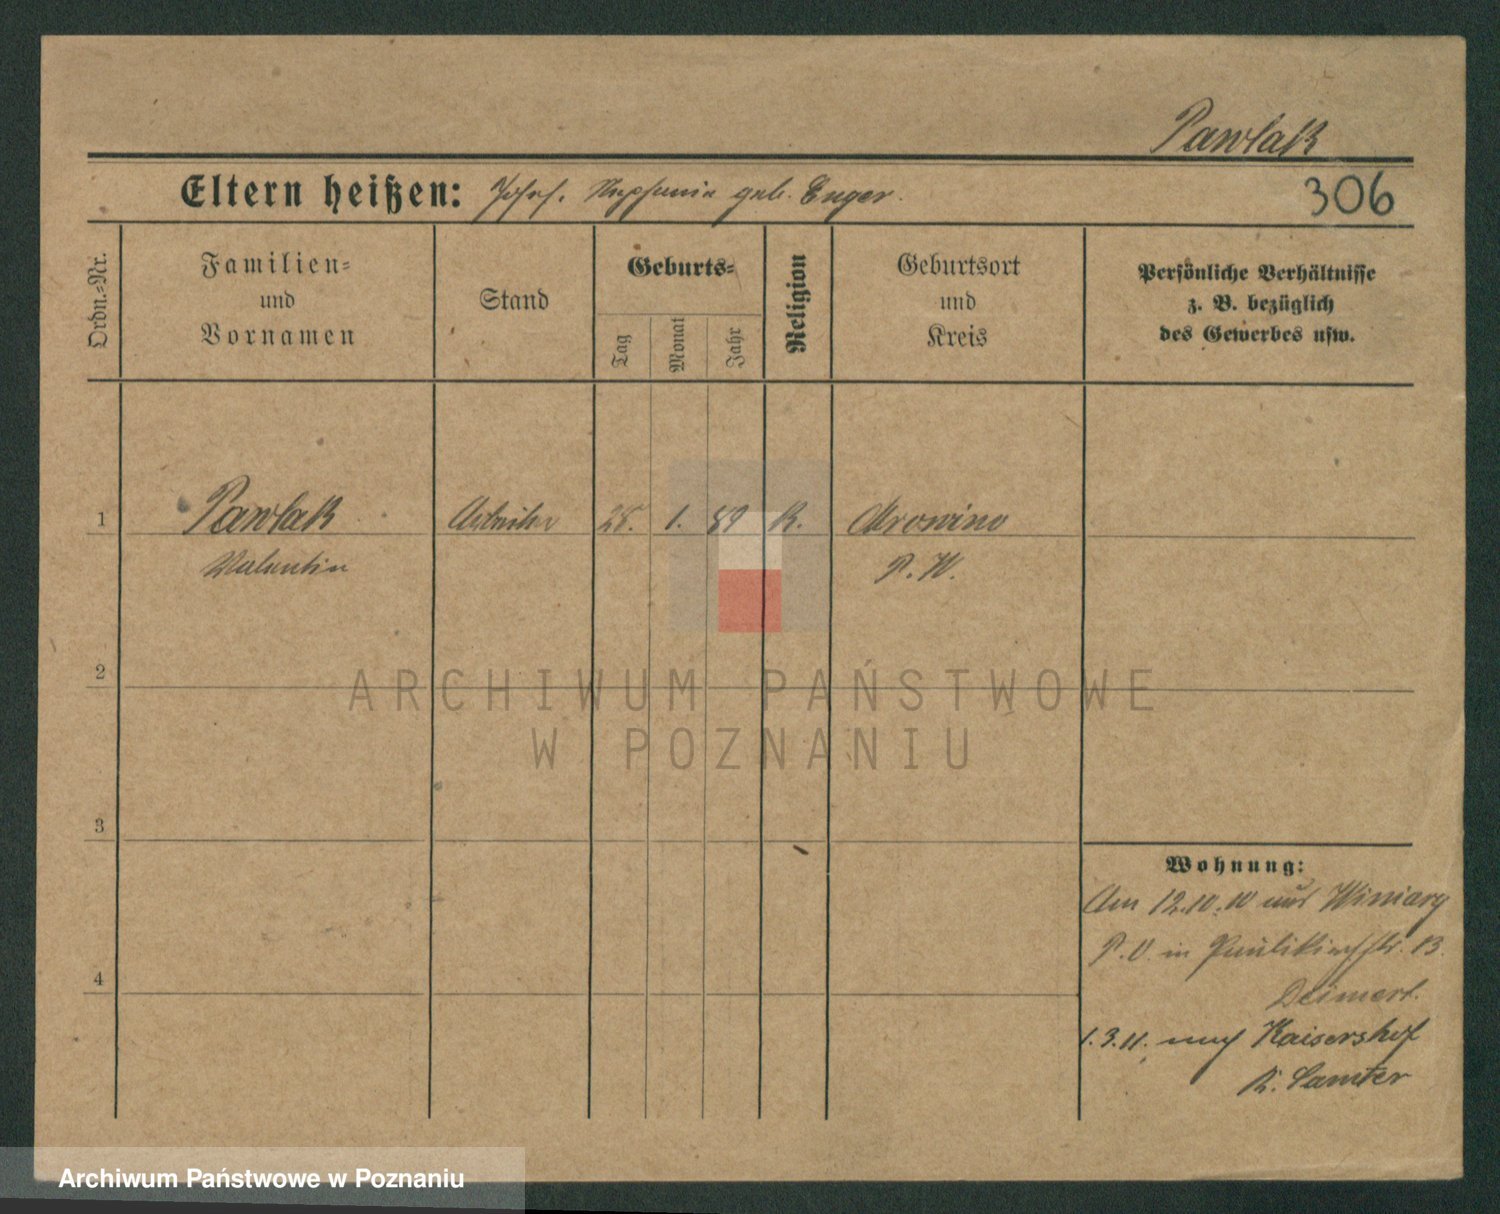 Pawlak
Eltern heißen: Josef. geb. Enger.
306
Ordn.-Nr.
Familien-
und
Vornamen
Stand
Geburts-
Tag
Monat
Jahr
Religion
Geburtsort
und
Kreis
Persönliche Verhältnisse
z. B. bezüglich
des Gewerbes usw.
1
Pawlak
Arbeiter
1.
89
K.
Mrowino
Valentin
P. W.
2
3
4
Wohnung:
Am 12.10.10 aus Winiary
P.O. in Paulikirchstr.
1.3.11. nach Kaisershof
K. Samter
ARCHIWUM PAŃSTWOWE
W POZNANIU
Archiwum Państwowe w Poznaniu